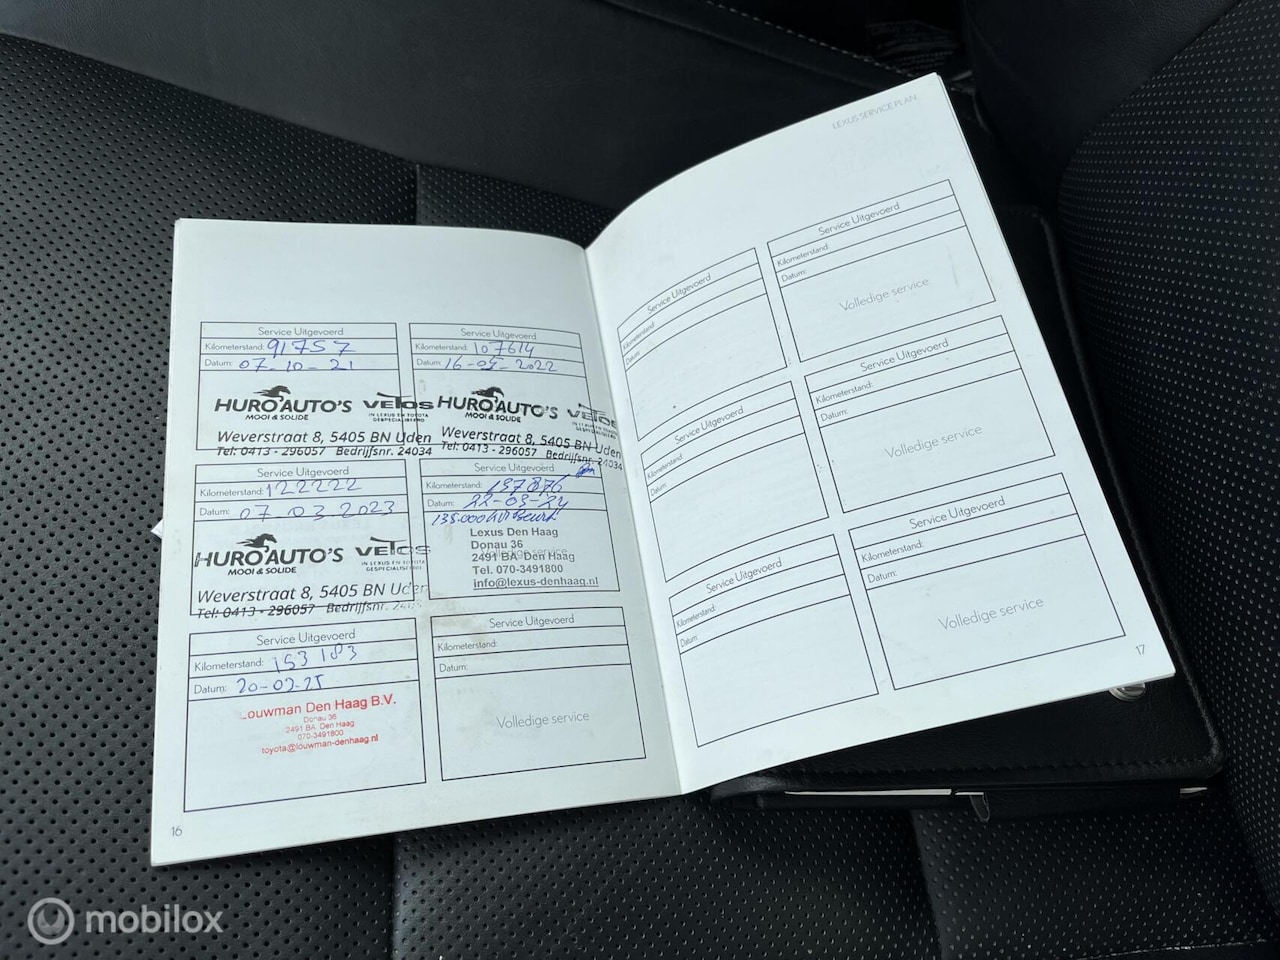 Service Uitgevoerd
Kilometerstand: 91757
Datum: 07-10-21
HURO AUTO'S
MOOI & SOLIDE
VETOS
IN LEXUS EN TOYOTA
GESPECIALISEERD
Weverstraat 8, 5405 BN Uden
Tel: 0413 - 296057 Bedrijfsnr. 24034
Service Uitgevoerd
Kilometerstand: 107614
Datum: 16-05-2022
HURO AUTO'S
MOOI & SOLIDE
Weverstraat 8, 5405 BN Uden
Tel: 0413 - 296057 Bedrijfsnr. 24034
Service Uitgevoerd
Kilometerstand: 122222
Datum: 07 03 2023
HURO AUTO'S
MOOI & SOLIDE
VETOS
IN LEXUS EN TOYOTA
GESPECIALISEERD
Weverstraat 8, 5405 BN Uden
Tel: 0413 - 296057 Bedrijfsnr.
Service Uitgevoerd
Kilometerstand: 137876
Datum: 22-03-24
135.000 km Beurt
Lexus Den Haag
Donau 36
2491 BA Den Haag
Tel. 070-3491800
info@lexus-denhaag.nl
Service Uitgevoerd
Kilometerstand: 153183
Datum: 20-02-25
Louwman Den Haag B.V.
Donau 36
2491 BA Den Haag
070-3491800
toyota@louwman-denhaag.nl
Service Uitgevoerd
Kilometerstand:
Datum:
Volledige service
16
LEXUS SERVICE PLAN
Service Uitgevoerd
Kilometerstand:
Datum:
Service Uitgevoerd
Kilometerstand:
Datum:
Volledige service
Service Uitgevoerd
Kilometerstand:
Datum:
Service Uitgevoerd
Kilometerstand:
Datum:
Volledige service
Service Uitgevoerd
Kilometerstand:
Datum:
Service Uitgevoerd
Kilometerstand:
Datum:
Volledige service
17
mobilox